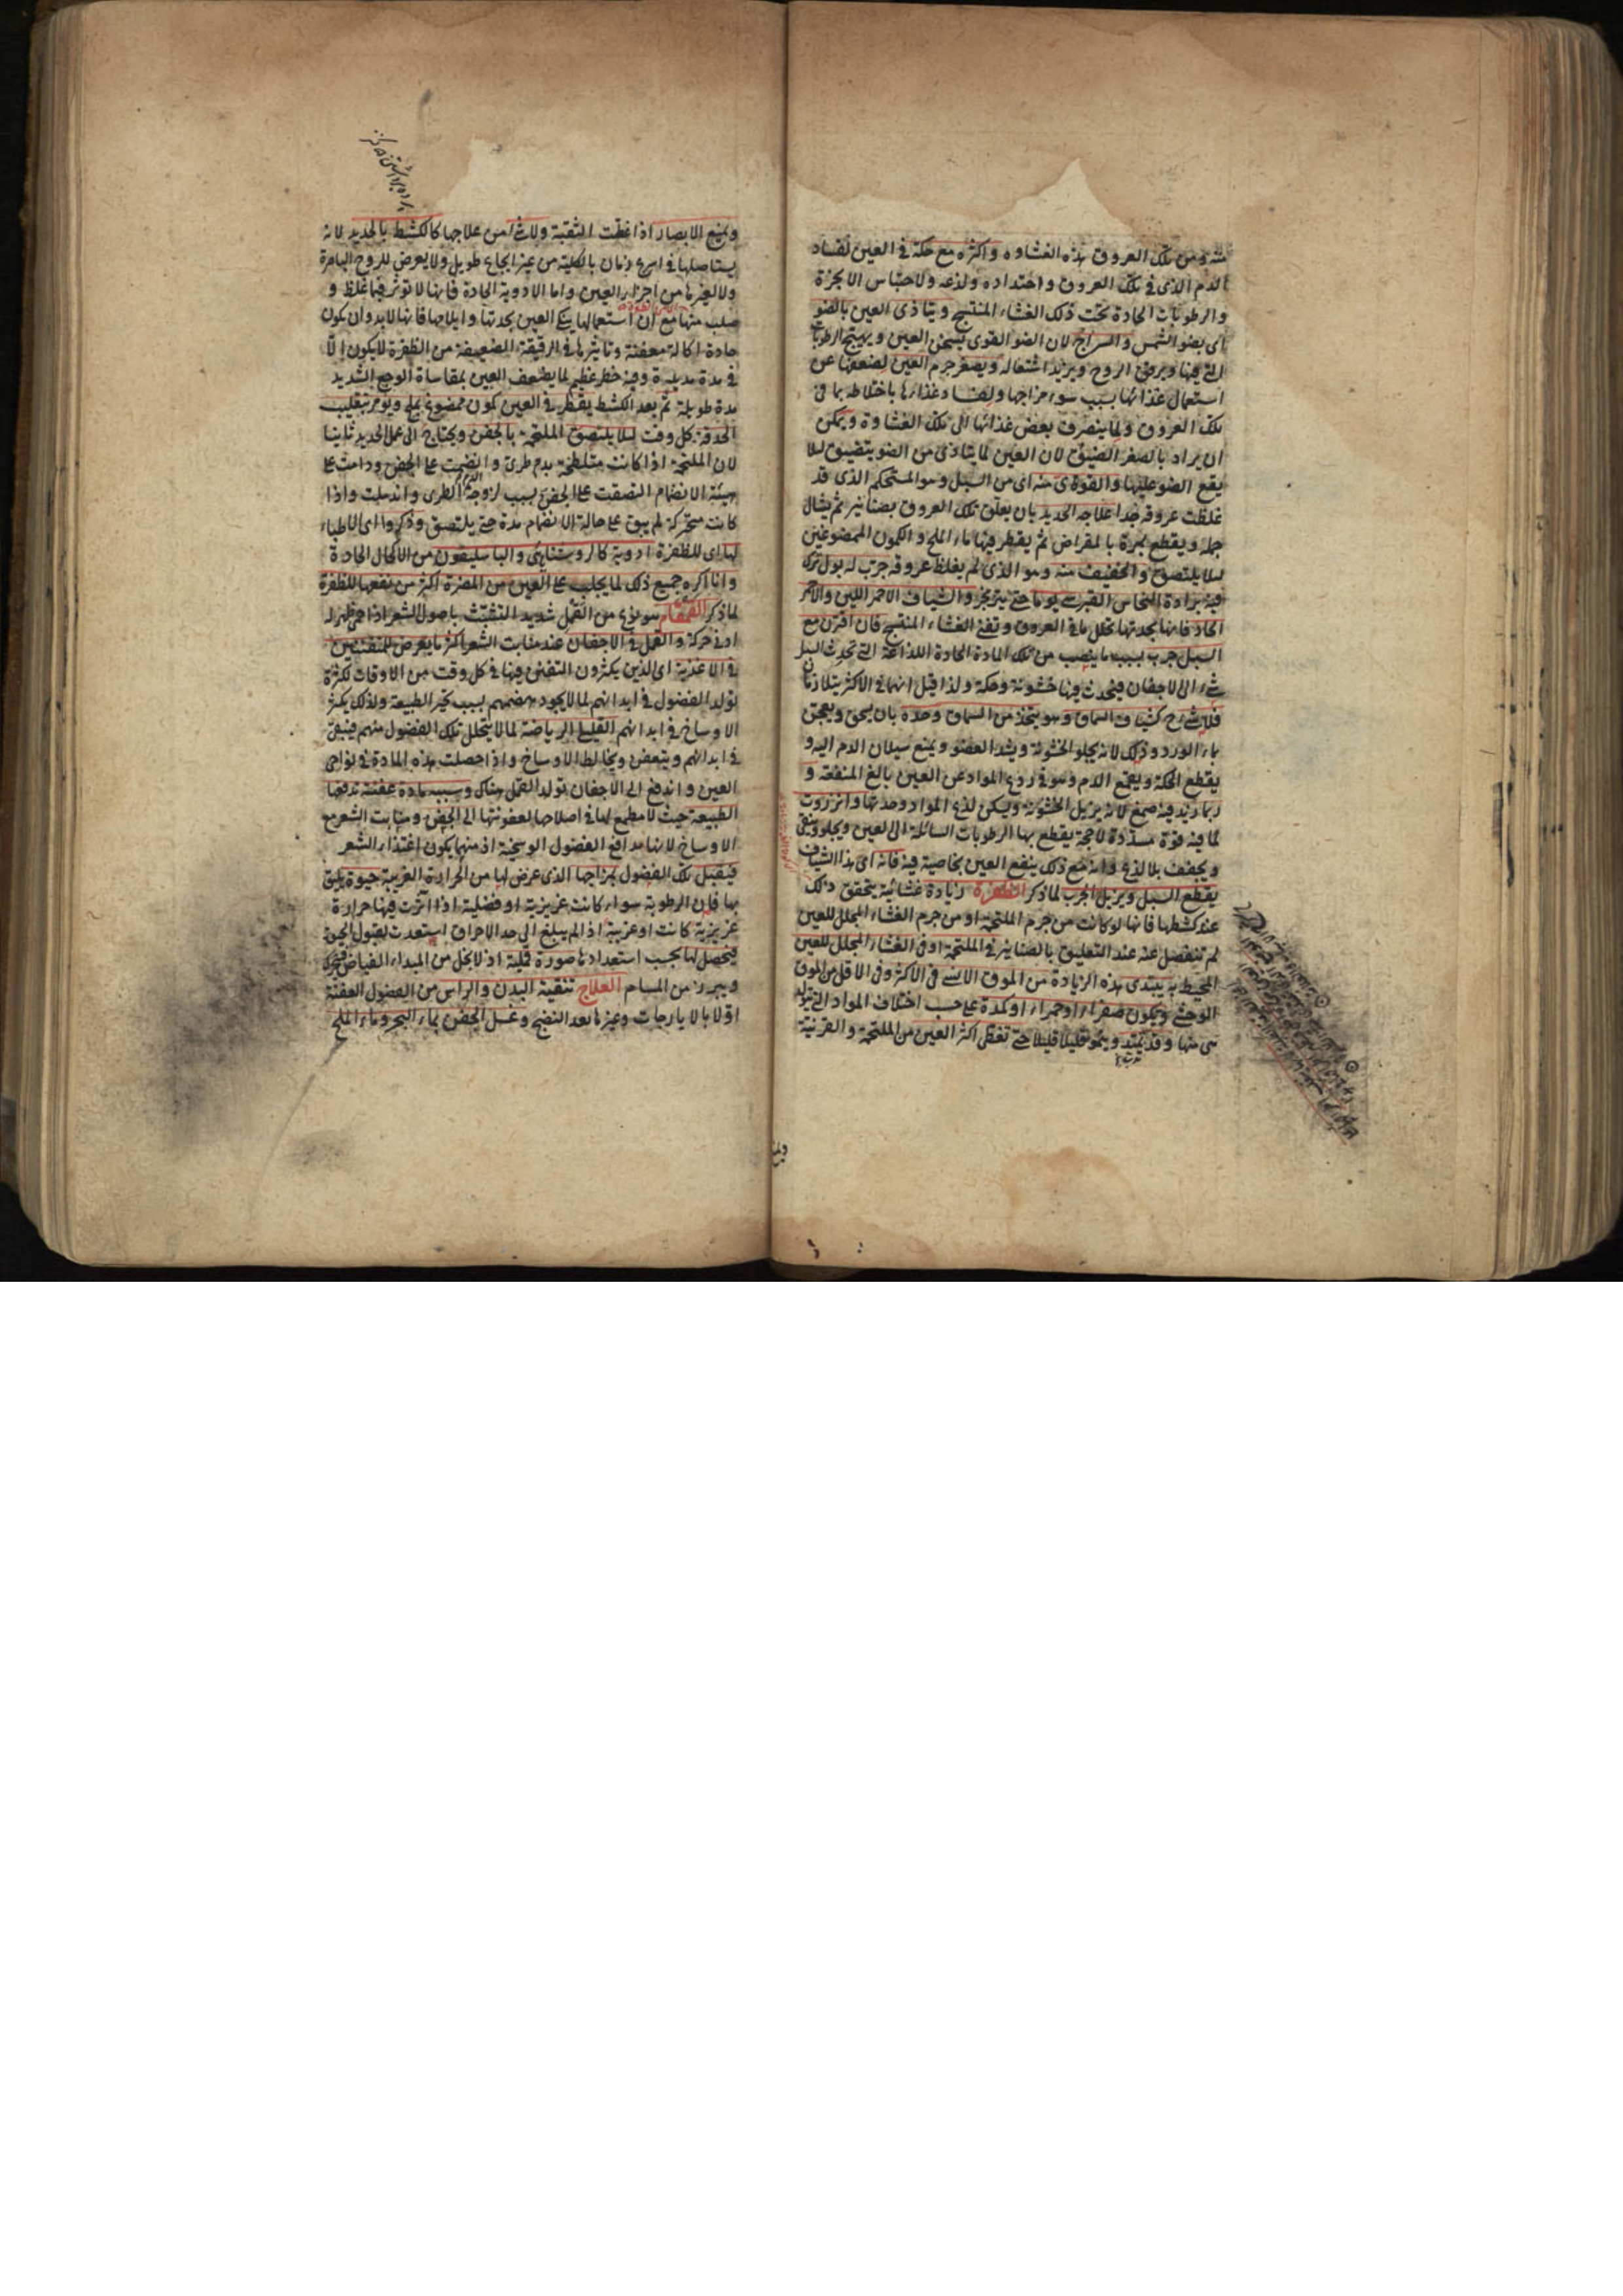 منه ومن تلك العروق هذه الغشاوه واكثره مع حكة في العين لفساد
الدم الذى في تلك العروق واحتداده ولذعه ولاحتباس الابخرة
والرطوبات الحادة تحت ذلك الغشاء المنتسج ويتاذى العين بالضو
اى بضو الشمس والسراج لان الضو القوى يسخن العين ويهيج الرطوبات
التى فيها ويرقق الروح ويزيد اشتعاله ويصغر جرم العين لضعفها عن
استعمال غذائها بسبب سوء مزاجها ولفساد غذاءها باختلاطه بما في
تلك العروق ولما ينصرف بعض غذائها الى تلك الغشاوة ويمكن
ان يراد بالصغر الضيق لان العين لما يتاذى من الضو يتضيق لئلا
يقع الضو عليها والقوى منه اى من السبل وهو المستحكم الذى قد
غلظت عروقه جدا علاجه الحديد بان يعلق تلك العروق بصنانير ثم يشال
جمله ويقطع بمرة بالمقراض ثم يقطر فيها ماء الملح والكمون الممضوغين
لئلا يلتصق والخفيف منه وهو الذى لم يغلظ عروقه جرب له بول ترك
فيه برادة النحاس القبرسى يوما حتى يتزنجر والشياف الاحمر اللين والاحمر
الحاد فانها بحدتها تحلل ما في العروق وتفنى الغشاء المنتسج فان اقترن مع
السبل جرب بسبب ما ينصب من تلك المادة الحادة اللذاعة التى تحدث السبل
شئ الى الاجفان فيحدث فيها خشونة وحكة ولذا قيل انهما في الاكثر يتلازمان
فلا شئ ح كشياف السماق وهو يتخذ من السماق وحده بان يسحق ويعجن
بماء الورد وذلك لانه يجلو الخشونة ويشد العضو ويمنع سيلان الدم اليه و
يقطع الحكة ويقمع الدم وهو في ردع المواد عن العين بالغ المنفعة و
ربما زيد فيه صمغ لانه يزيل الخشونة ويسكن لذع المواد وحدتها وانزروت
لما فيه قوة مسددة لاحجة يقطع بها الرطوبات السائلة الى العين ويجلو وينقى
ويجفف بلا لذع وانه مع ذلك ينفع العين بخاصية فيه فانه اى هذا الشياف
يقطع السبل ويزيل الجرب لما ذكر الظفرة زيادة غشائية يتحقق ذلك
عند كشطها فانها لو كانت من جرم الملتحمة او من جرم الغشاء المجلل للعين
لم تنفصل عنه عند التعليق بالصنانير في الملتحمة او في الغشاء المجلل للعين
المحيط به يبتدى هذه الزيادة من الموق الانسى في الاكثر وفي الاقل من الموق
الوحشى ويكون صفراء او حمراء او كمدة على حسب اختلاف المواد التى تتولد
هى منها وقد يمتد وينمو قليلا قليلا حتى تغطى اكثر العين من الملتحمة والقرنية
ويمنع
ويمنع الابصار اذا غطت الثقبة ولا شئ من علاجها كالكشط بالحديد لانه
يستاصلها في اسرع زمان بالكلية من غير ايجاع طويل ولا يعرض للروح الباصرة
ولا لغيرها من اجزاء العين واما الادوية الحادة فانها لا تؤثر فيما غلظ و
صلب منها مع ان استعمالها ينكى العين بحدتها وايلامها فانها لا بد وان يكون
حادة اكالة معفنة وتاثيرها في الرقيقة الضعيفة من الظفرة لا يكون الا
في مدة مديدة وفيه خطر عظيم لما يضعف العين بمقاساة الوجع الشديد
مدة طويلة ثم بعد الكشط يقطر في العين كمون ممضوغ بملح ويؤمر بتقليب
الحدقة كل وقت لئلا يلتصق الملتحمة بالجفن ويحتاج الى عمل الحديد ثانيا
لان الملتحمة اذا كانت متلطخة بدم طرى وانضمت على الجفن ودامت على
هيئة الانضمام التصقت على الجفن بسبب لزوجة الدم الطرى واندملت واذا
كانت متحركة لم يبق على حالة الانضمام مدة حتى يلتصق وذكروا اى الاطباء
لها اى للظفرة ادوية كالروشنايى والباسليقون من الاكحال الحادة
وانا اكره جميع ذلك لما يجلب على العين من المضرة اكثر من نفعها للظفرة
لما ذكر القمقام هو نوع من القمل شديد التشبث باصول الشعر اذا حمى ظهر له
ادنى حركة والقمل في الاجفان عند منابت الشعر اكثر ما يعرض للمتفننين
في الاغذية اى الذين يكثرون التفنن فيها في كل وقت من الاوقات لكثرة
تولد الفضول في ابدانهم لما لا يجود هضمهم بسبب تحير الطبيعة ولذلك يكثر
الاوساخ في ابدانهم القليلى الرياضة لما لا يتحلل تلك الفضول منهم فيبقى
في ابدانهم ويتعفن ويخالط الاوساخ واذا حصلت هذه المادة في نواحى
العين واندفع الى الاجفان تولد القمل هناك وسببه مادة عفنة تدفعها
الطبيعة حيث لا مطمع لها في اصلاحها لعفونتها الى الجفن ومنابت الشعر مع
الاوساخ لانها مدافع الفضول الوسخية اذ منها يكون اغتذاء الشعر
فيقبل تلك الفضول بمزاجها الذى عرض لها من الحرارة الغريبة حيوة يليق
بها فان الرطوبة سواء كانت غريزية او فضلية اذا اثرت فيها حرارة
غريزية كانت او غريبة اذا لم يبلغ الى حد الاحراق استعدت لقبول الحيوة
فيحصل لها بحسب استعدادها صورة قملية اذ لا بخل من المبداء الفياض فيتحرك
ويبرز من المسام العلاج تنقية البدن والراس من الفضول العفنة
اولا بالايارجات وغيرها بعد النضج وغسل الجفن بماء البحر وماء الملح